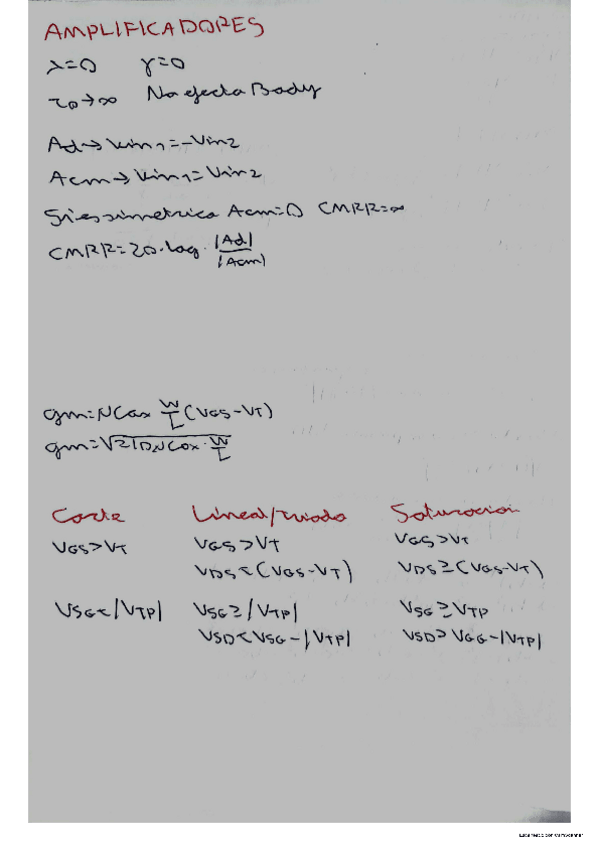 AMPLIFICADORES
λ=0 γ=0
ro→∞ No efecto Body
Ad→Vin1=-Vin2
Acm→Vin1=Vin2
Si es simetrica Acm=0 CMRR=∞
CMRR=20·log·|Ad|/|Acm|
gm=μCox W/L (VGS-VT)
gm=√2IDμCox·W/L
Corte Lineal/triodo Saturacion
VGS>VT VGS>VT VGS>VT
VDS<(VGS-VT) VDS≥(VGS-VT)
VSG<|VTP| VSG≥|VTP| VSG≥VTP
VSD<VSG-|VTP| VSD≥VGG-|VTP|